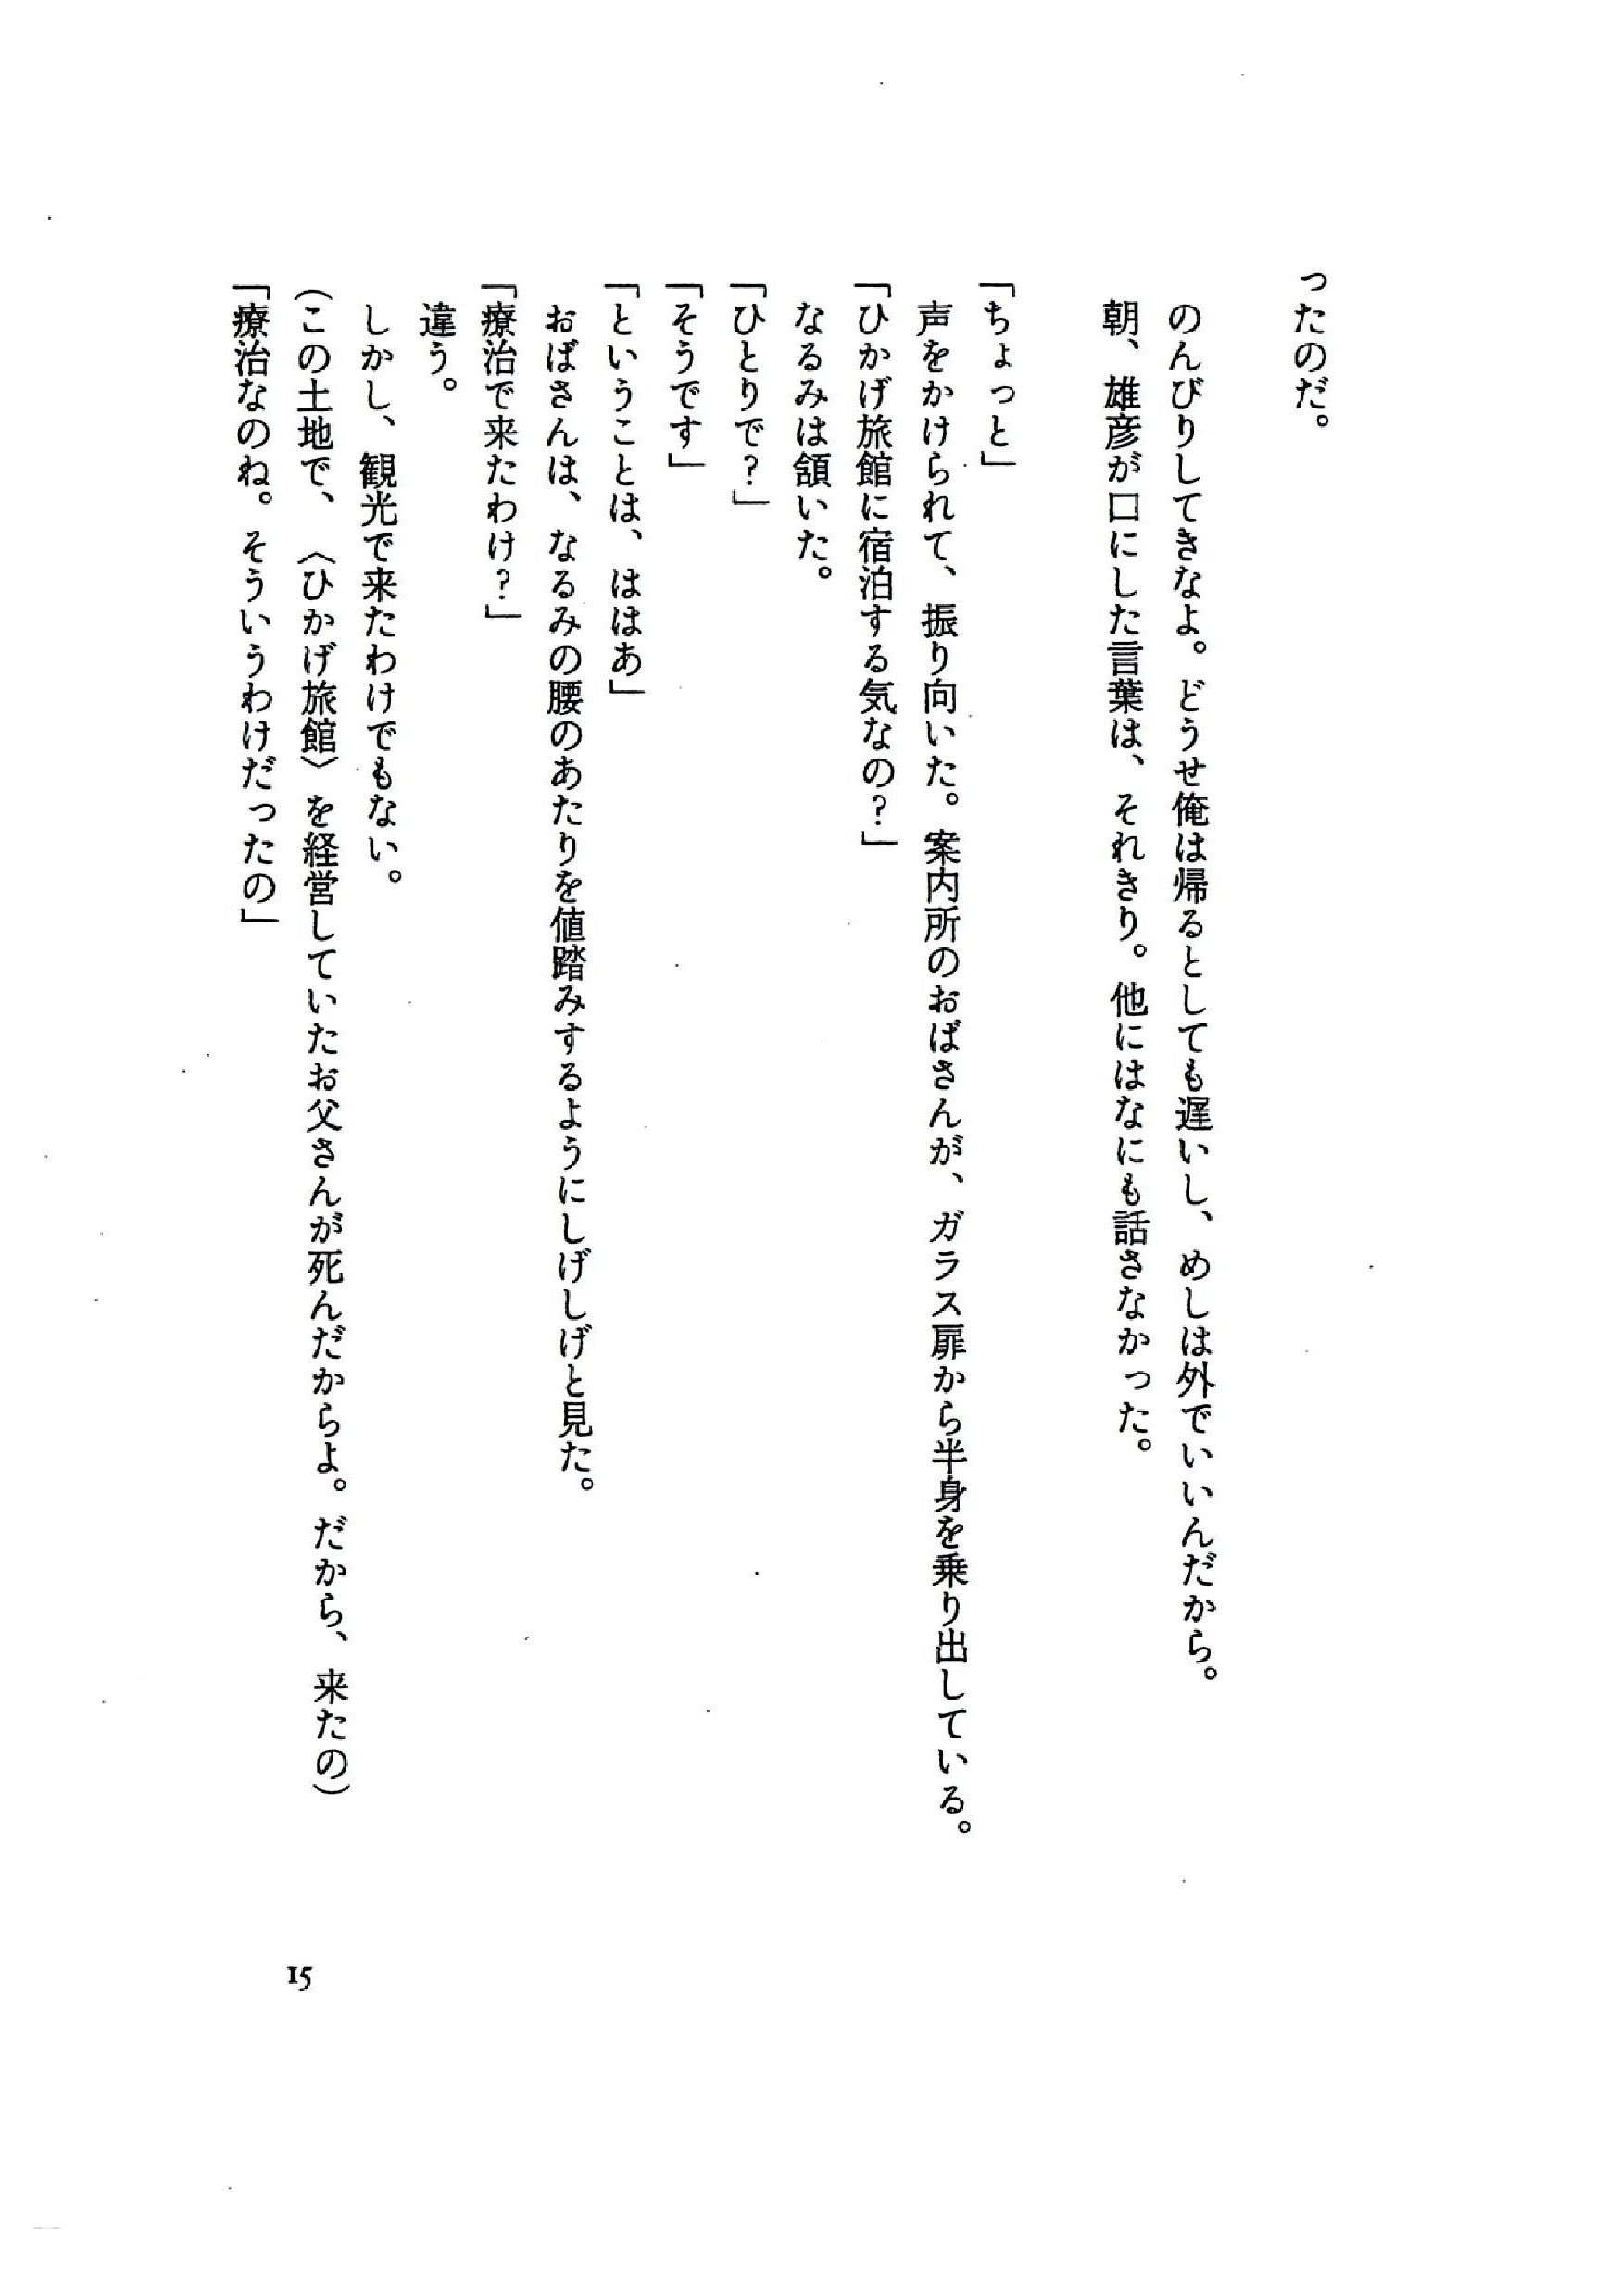 ったのだ。
のんびりしてきなよ。どうせ俺は帰るとしても遅いし、めしは外でいいんだから。
朝、雄彦が口にした言葉は、それきり。他にはなにも話さなかった。
「ちょっと」
声をかけられて、振り向いた。案内所のおばさんが、ガラス扉から半身を乗り出している。
「ひかげ旅館に宿泊する気なの？」
なるみは頷いた。
「ひとりで？」
「そうです」
「ということは、ははあ」
おばさんは、なるみの腰のあたりを値踏みするようにしげしげと見た。
「療治で来たわけ？」
違う。
しかし、観光で来たわけでもない。
（この土地で、〈ひかげ旅館〉を経営していたお父さんが死んだからよ。だから、来たの）
「療治なのね。そういうわけだったの」
15